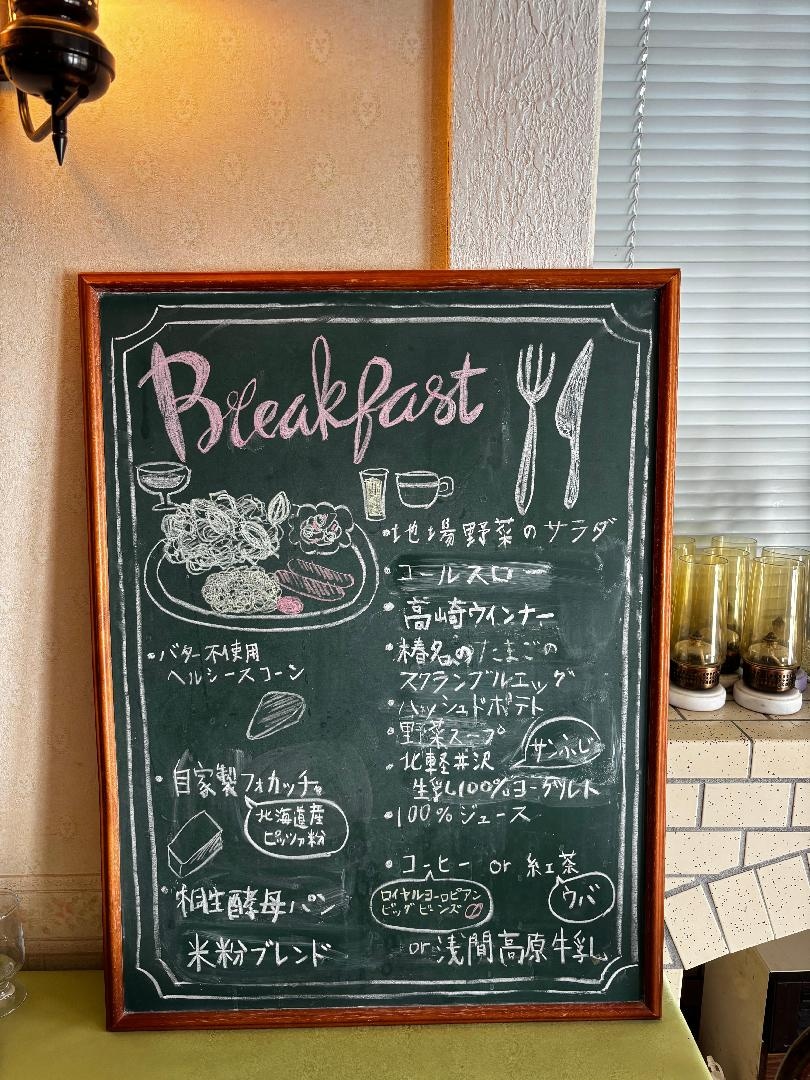 Breakfast
・地場野菜のサラダ
・コールスロー
・高崎ウインナー
・榛名のたまごの
スクランブルエッグ
・ハッシュドポテト
・野菜スープ
・北軽井沢
生乳100%ヨーグルト
サンふじ
・100%ジュース
・コーヒー or 紅茶
ロイヤルヨーロピアン
ビッグビーンズ
ウバ
or 浅間高原牛乳
・バター不使用
ヘルシースコーン
・自家製フォカッチャ
北海道産
ピッツァ粉
・桐生酵母パン
米粉ブレンド